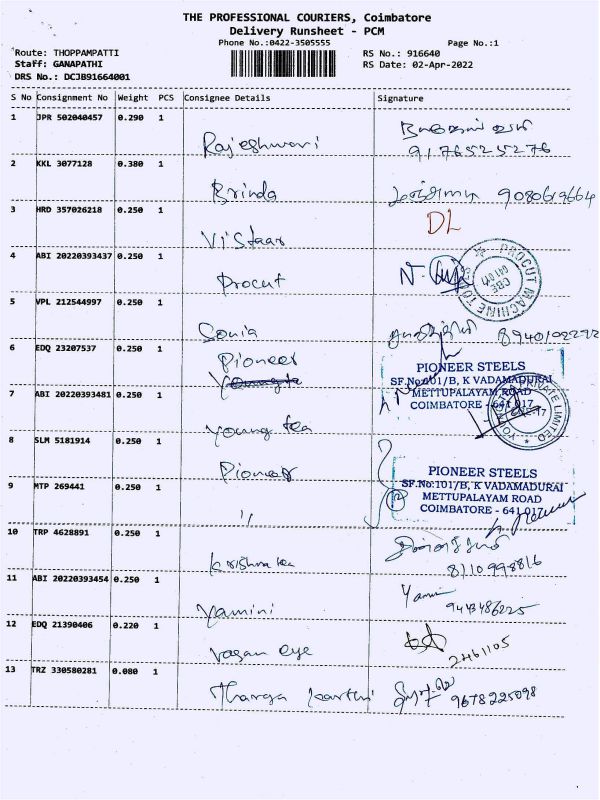 THE PROFESSIONAL COURIERS, Coimbatore
Delivery Runsheet - PCM
Phone No.:0422-3505555
Page No.:1
Route: THOPPAMPATTI
RS No.: 916640
Staff: GANAPATHI
RS Date: 02-Apr-2022
DRS No.: DCJB91664001
S No Consignment No Weight PCS Consignee Details Signature
1 JPR 502040457 0.290 1
Rajeshwari 9176525276
2 KKL 3077128 0.380 1
Brinda 9080619664
3 HRD 357026218 0.250 1
Vistaar DL
4 ABI 20220393437 0.250 1
Procut
PROCUT MACHINE TOOLS
CBE
641 011
5 VPL 212544997 0.250 1
Sonia 8940102272
6 EDQ 23207537 0.250 1
Pioneer
PIONEER STEELS
SF.No:101/B, K VADAMADURAI
METTUPALAYAM ROAD
COIMBATORE - 641 017
PRIVATE LIMITED
7 ABI 20220393481 0.250 1
Young tea
8 SLM 5181914 0.250 1
Pioneer
PIONEER STEELS
SF.No:101/B, K VADAMADURAI
METTUPALAYAM ROAD
COIMBATORE - 641 017
9 MTP 269441 0.250 1
"
10 TRP 4628891 0.250 1
Krishna tea
8110998816
11 ABI 20220393454 0.250 1
Yamini
9443486225
12 EDQ 21390406 0.220 1
Vasan eye
2461105
13 TRZ 330580281 0.080 1
Tharga Karthi 9678225098